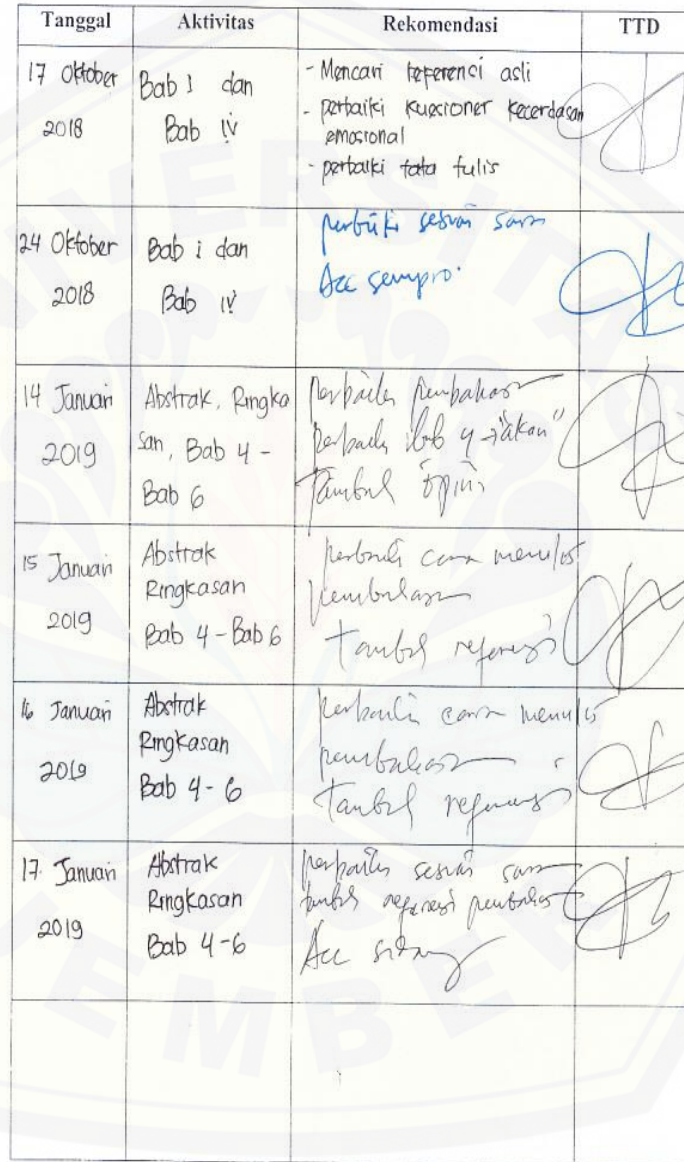 Tanggal Aktivitas Rekomendasi TTD
17 Oktober
2018
Bab I dan
Bab IV
- Mencari referensi asli
- perbaiki kuesioner kecerdasan
emosional
- perbaiki tata tulis
24 Oktober
2018
Bab i dan
Bab IV
perbaiki sesuai saran
Acc sempro.
14 Januari
2019
Abstrak, Ringka
san, Bab 4 -
Bab 6
perbaiki pembahasan
perbaiki bab 4 → "akan"
tambah opini
15 Januari
2019
Abstrak
Ringkasan
Bab 4 - Bab 6
perbaiki cara menulis
pembahasan
tambah referensi
16 Januari
2019
Abstrak
Ringkasan
Bab 4 - 6
perbaiki cara menulis
pembahasan
tambah referensi
17. Januari
2019
Abstrak
Ringkasan
Bab 4-6
perbaiki sesuai saran
tambah referensi pembahas
Acc sidang
UNIVERSITAS
JEMBER